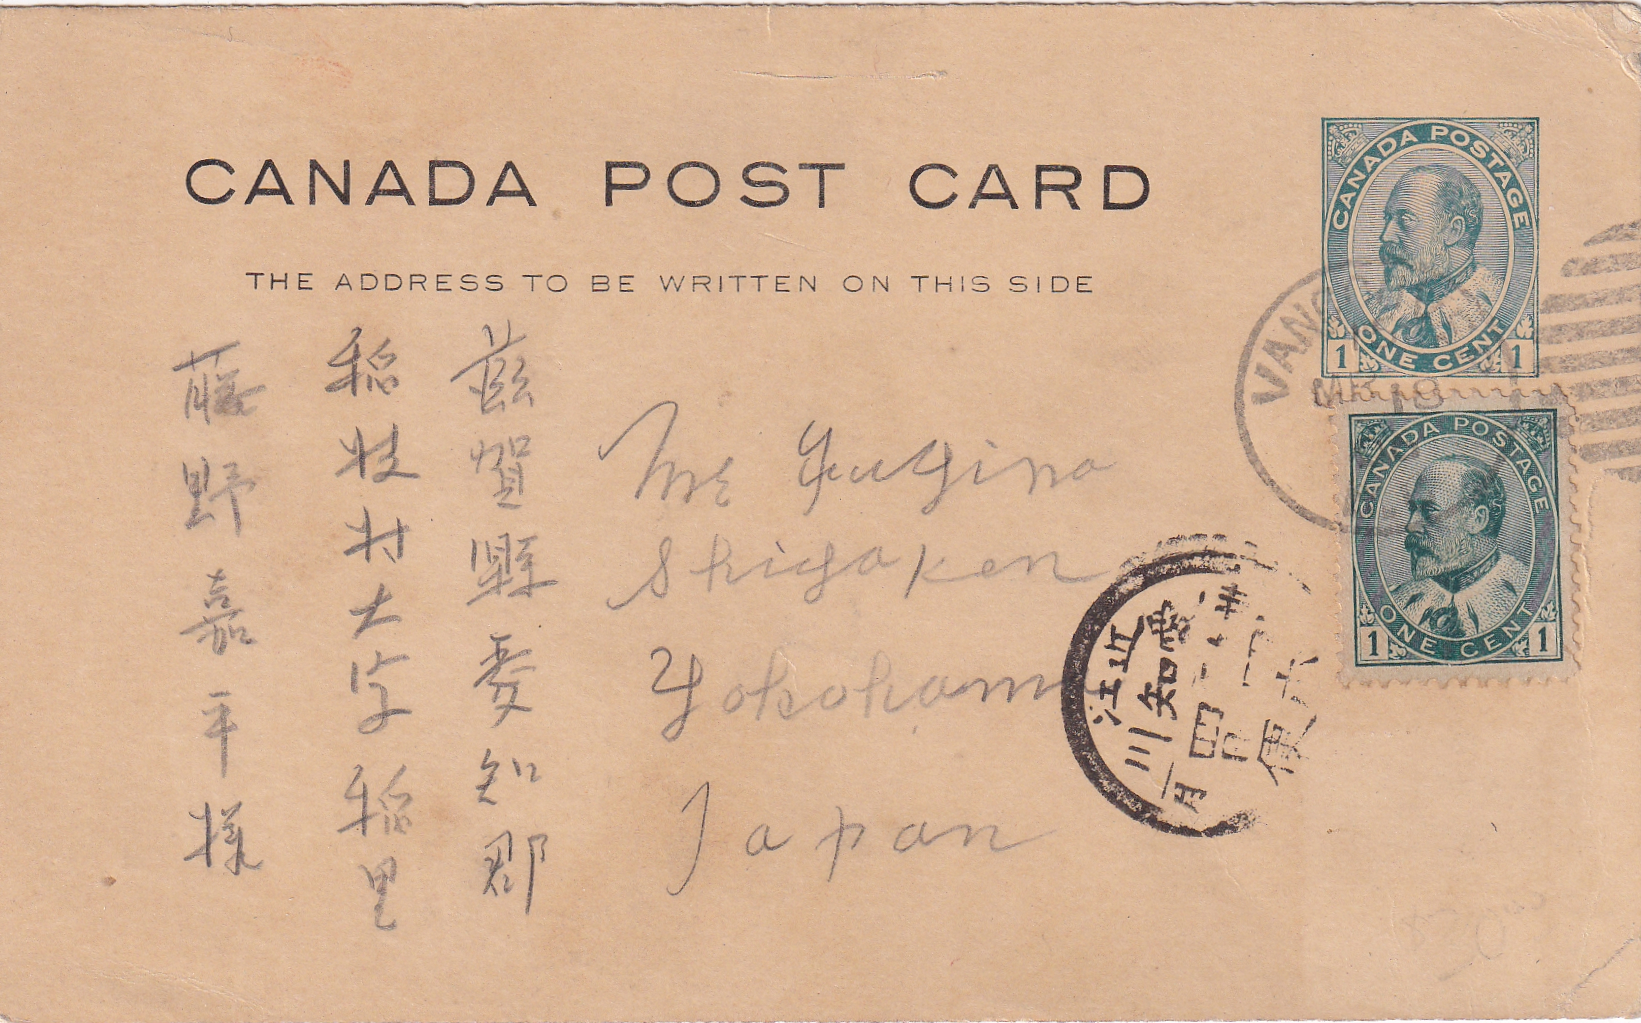 CANADA POST CARD
THE ADDRESS TO BE WRITTEN ON THIS SIDE
CANADA POSTAGE
ONE CENT
1 1
CANADA POSTAGE
ONE CENT
1 1
VANC
18
Mr Fugino
Shigaken
Yokohama
Japan
滋賀縣愛知郡
稲枝村大字稲里
藤野嘉平様
近江
愛知川
四